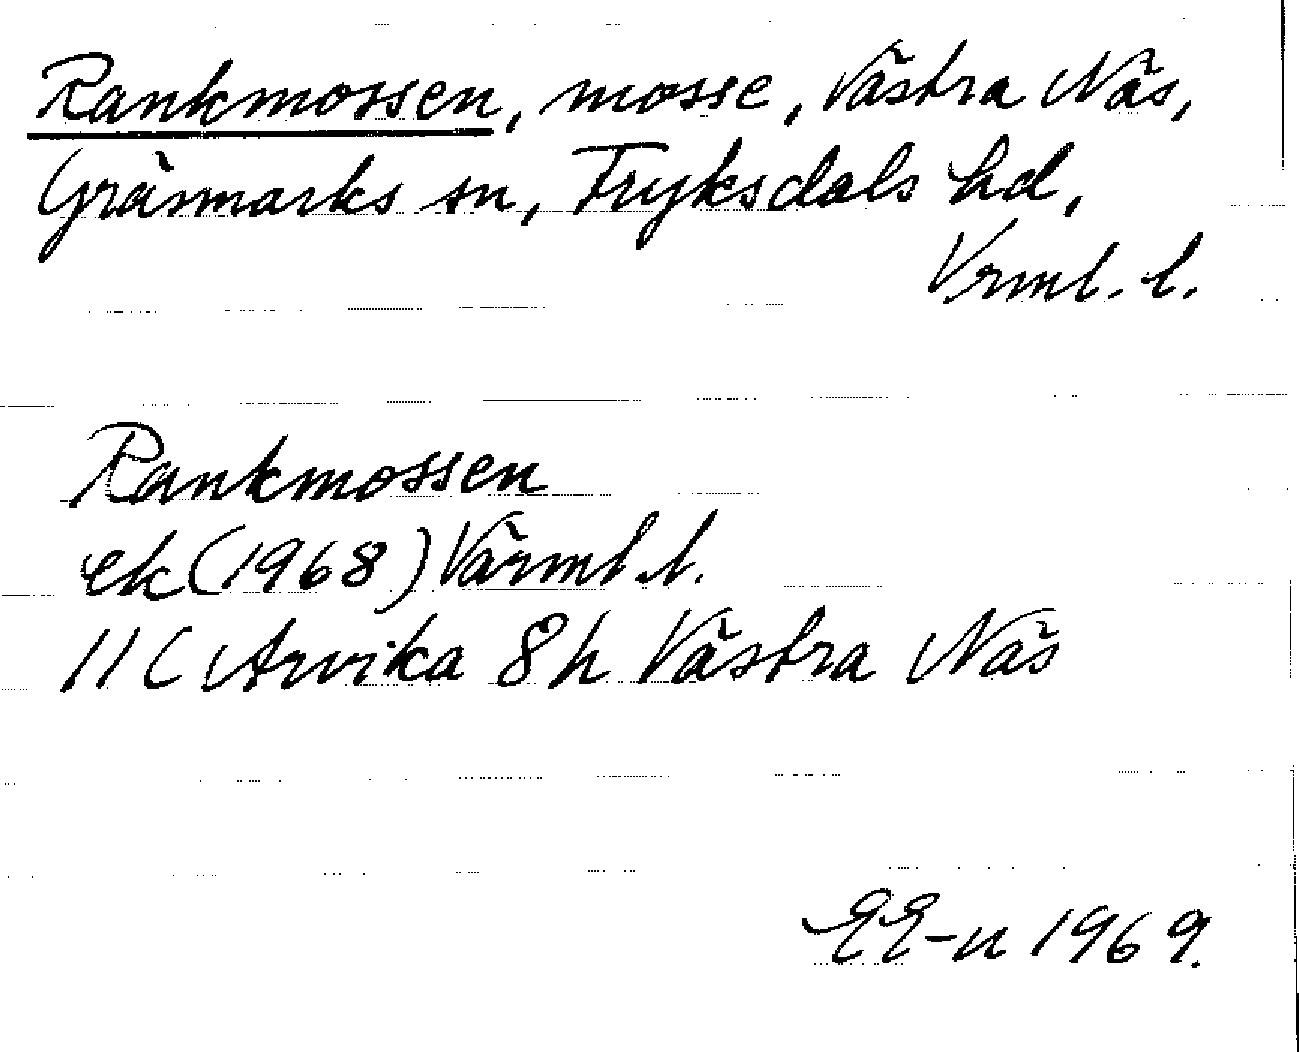 Rankmossen, mosse, Västra Näs,
Gräsmarks sn, Fryksdals hd,
Vrml. l.
Rankmossen
ek (1968) Värml. l.
11C Arvika 8h Västra Näs
EE-n 1969.